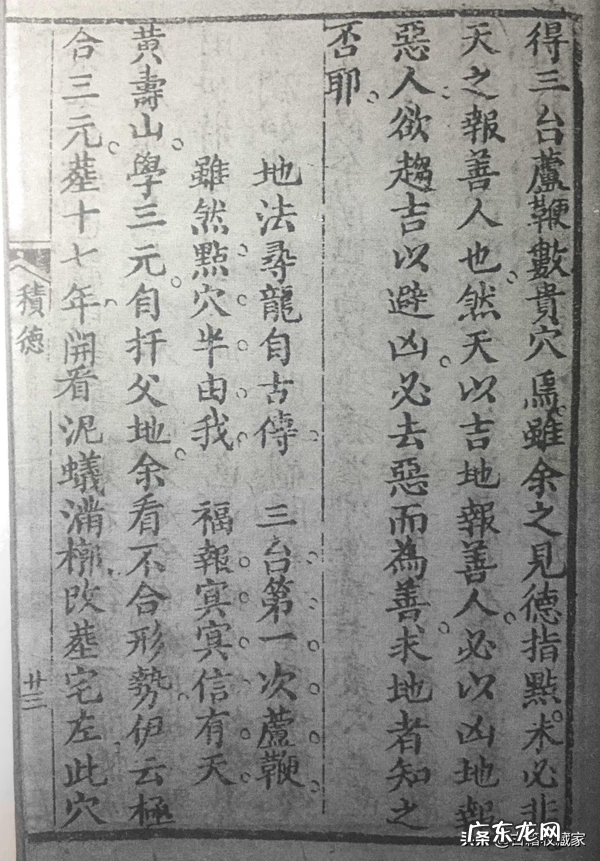 得三台蘆鞭數貴穴焉雖余之見德指點未必非
天之報善人也然天以吉地報善人必以凶地報
惡人欲趨吉以避凶必去惡而為善求地者知之
否耶
地法尋龍自古傳 三台第一次蘆鞭
雖然點穴半由我 福報冥冥信有天
黃壽山學三元自扦父地余看不合形勢伊云極
合三元塟十七年開看泥蟻滿槨改塟宅左此穴
積德
廿三
头条@古籍收藏家
广东龙网